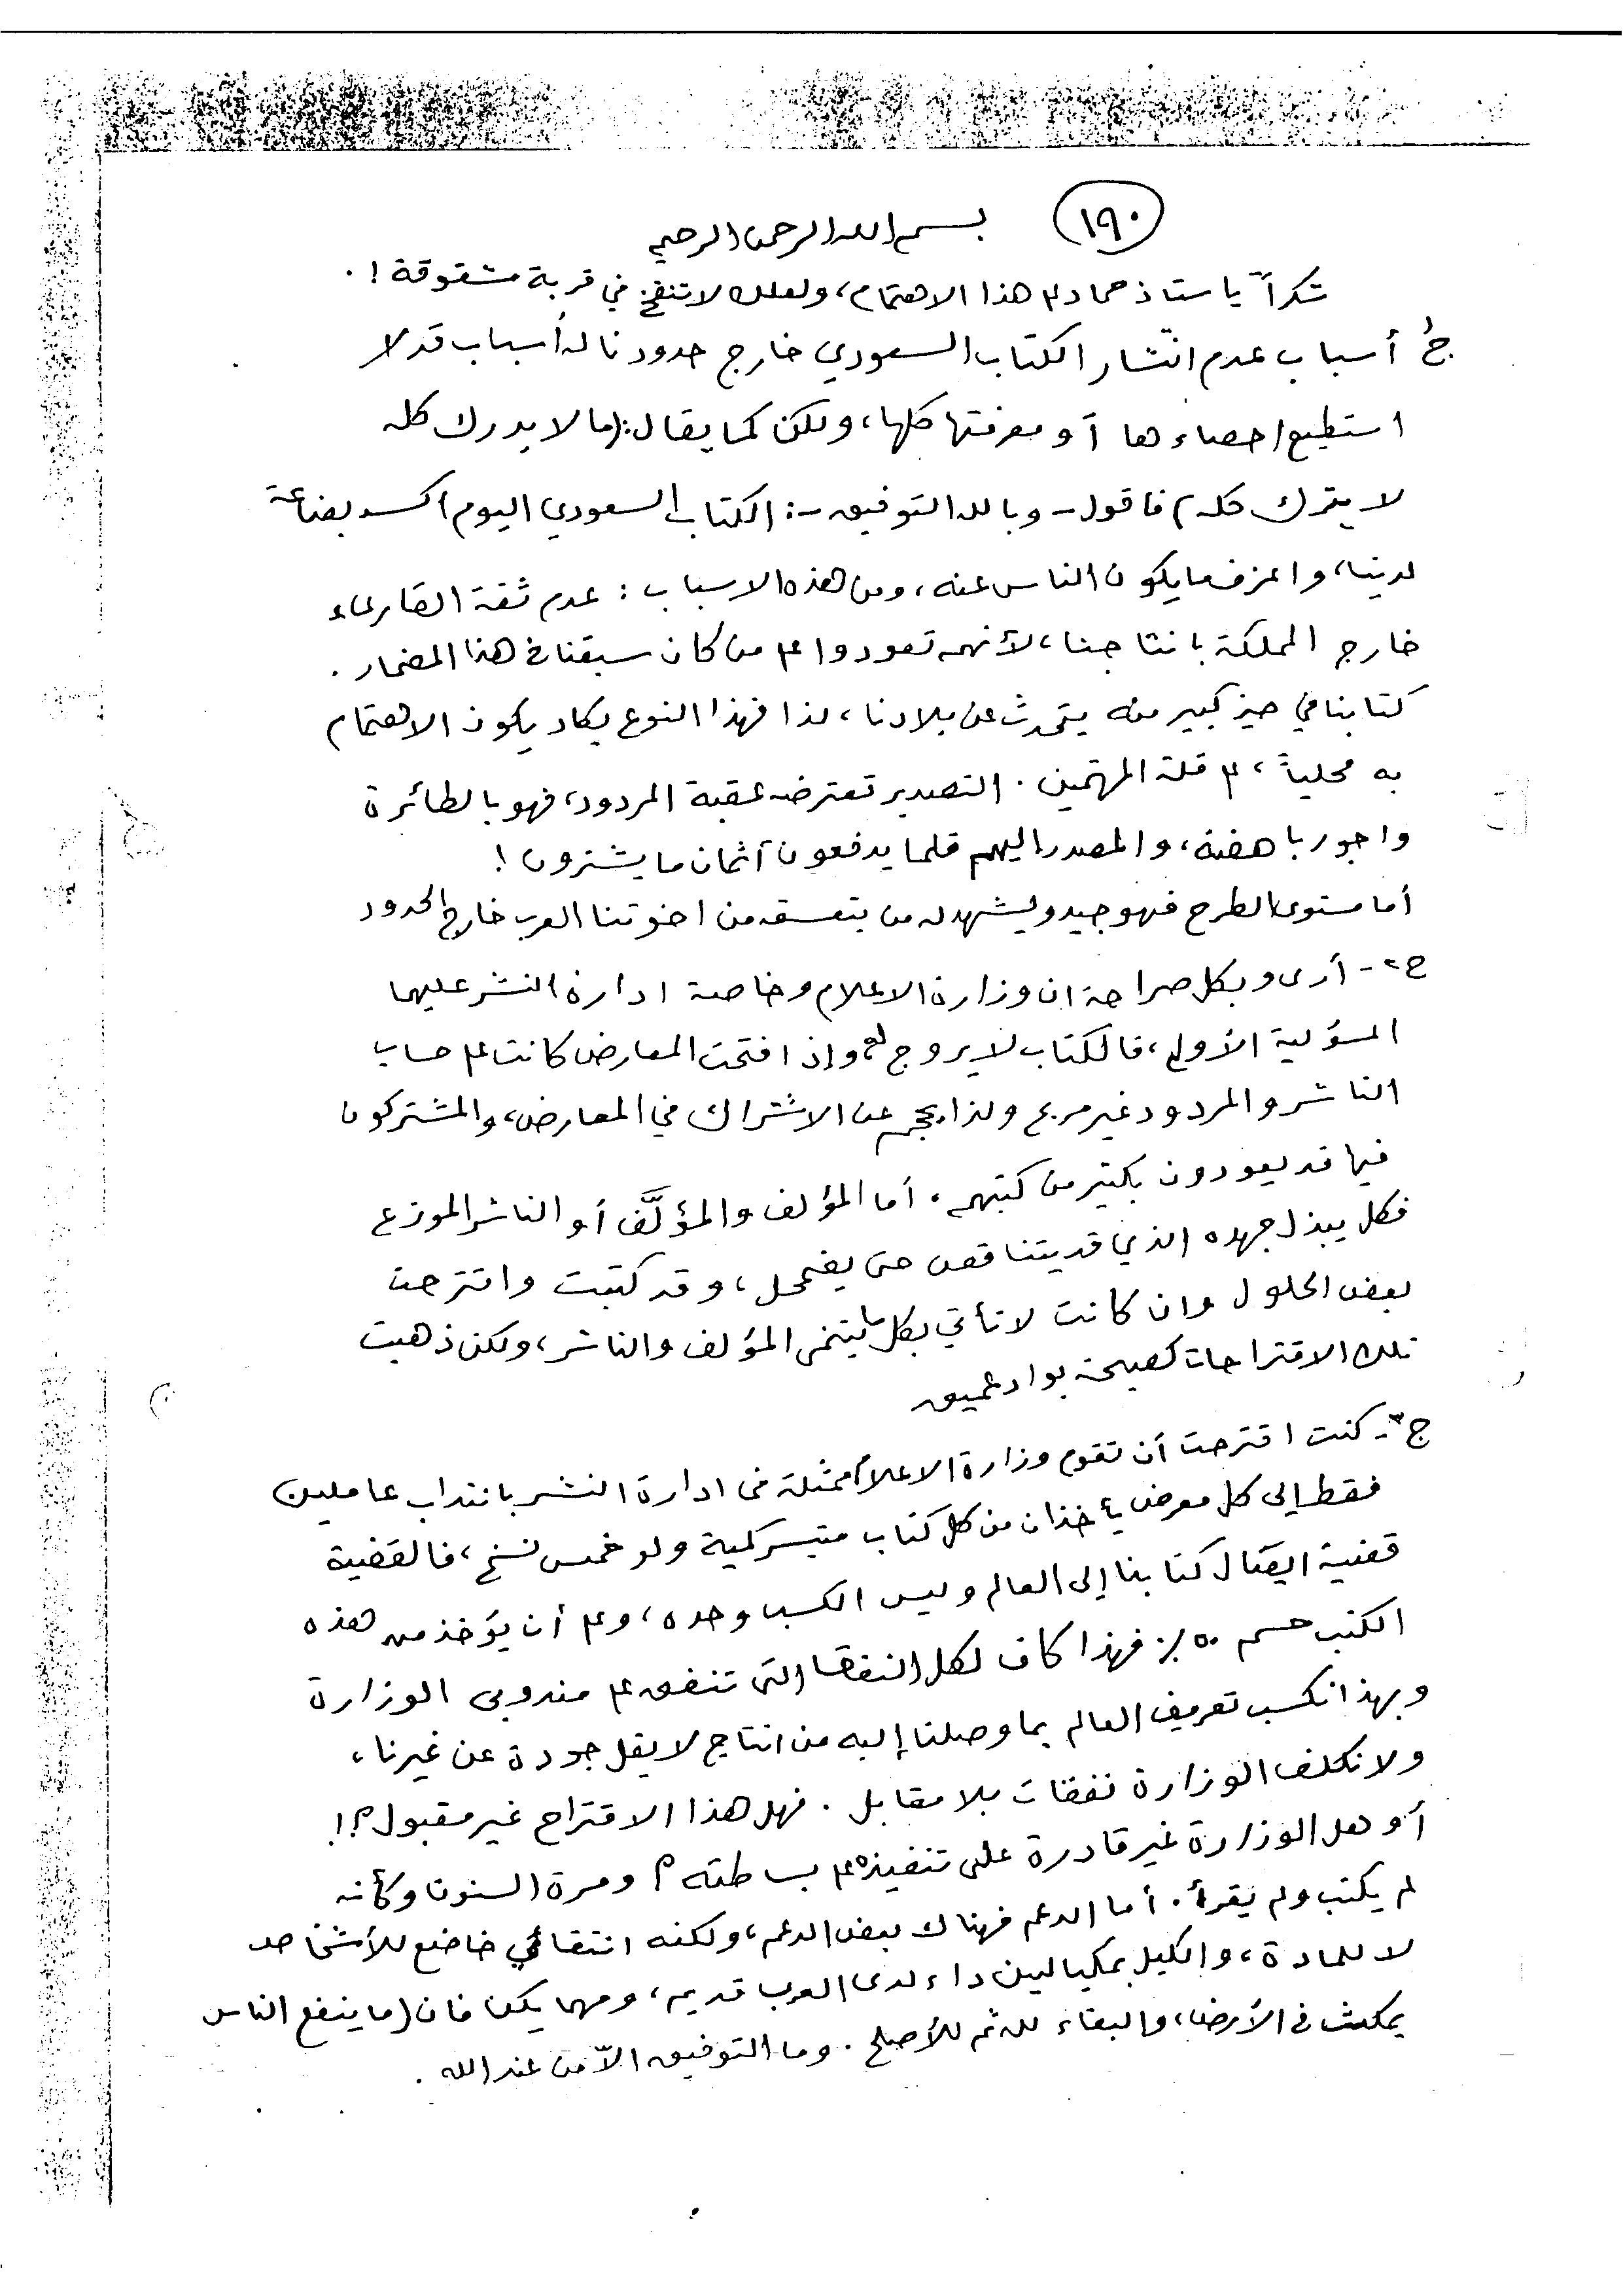 ١٩٠
بسم الله الرحمن الرحيم
شكراً يا ستاذ حماد على هذا الاهتمام، ولعلك لا تنفخ في قربة مشقوقة!.
ج١ أسباب عدم انتشار الكتاب السعودي خارج حدودنا له أسباب قد لا
استطيع احصاءها أو معرفتها كلها، ولكن كما يقال: (ما لا يدرك كله
لا يترك كله) فاقول - وبالله التوفيق -: الكتاب السعودي اليوم اكسد بضاعة
لدينا، واعزف ما يكون الناس عنه، ومن هذه الاسباب: عدم ثقة القارىء
خارج المملكة بانتاجنا، لأنهم تعودوا على من كان سبقنا في هذا المضمار.
كتابنا في حيز كبير منه يتحدث عن بلادنا، لذا فهذا النوع يكاد يكون الاهتمام
به محلياً، على قلة المهتمين. التصدير تعترضه عقبة المردود، فهو بالطائرة
واجور باهضة، والمصدر اليهم قلما يدفعون أثمان ما يشترون!
أما مستوى الطرح فهو جيد ويشهد له من يتعمق من اخوتنا العرب خارج الحدود
ج٢ - أرى وبكل صراحة ان وزارة الاعلام وخاصة ادارة النشر عليهما
المسؤلية الأولى، فالكتاب لا يروج له، وإذا افتتحت المعارض كانت على حساب
الناشر والمردود غير مربح ولذا يحجم عن الاشتراك في المعارض، والمشتركون
فيها قد يعودون بكثير من كتبهم. أما المؤلف والمؤلَّف أو الناشر الموزع
فكل يبذل جهده الذي قد يتناقص حتى يضمحل، وقد كتبت واقترحت
بعض الحلول وان كانت لا تأتي بكل ما يتمنى المؤلف والناشر، ولكن ذهبت
تلك الاقتراحات كصيحة بواد عميق
ج٣ - كنت اقترحت أن تقوم وزارة الاعلام ممثلة في ادارة النشر بانتداب عاملين
فقط إلى كل معرض يأخذان من كل كتاب متيسر كمية ولو خمس نسخ، فالقضية
قضية ايصال كتابنا إلى العالم وليس الكسب وحده، وعلى أن يؤخذ من هذه
الكتب حسم ٥٠٪ فهذا كاف لكل النفقات التي تنفق على مندوبي الوزارة
وبهذا نكسب تعريف العالم بما وصلنا إليه من انتاج لا يقل جودة عن غيرنا،
ولا نكلف الوزارة نفقات بلا مقابل. فهل هذا الاقتراح غير مقبول؟!
أو هل الوزارة غير قادرة على تنفيذه على بساطته؟ ومرة السنون وكأنه
لم يكتب ولم يقرأ. أما الدعم فهناك بعض الدعم، ولكنه انتقائي خاضع للأشخاص
لا للمادة، والكيل بمكيالين داء لدى العرب قديم، ومهما يكن فان (ما ينفع الناس
يمكث في الأرض، والبقاء لله ثم للأصلح. وما التوفيق الاّ من عند الله.